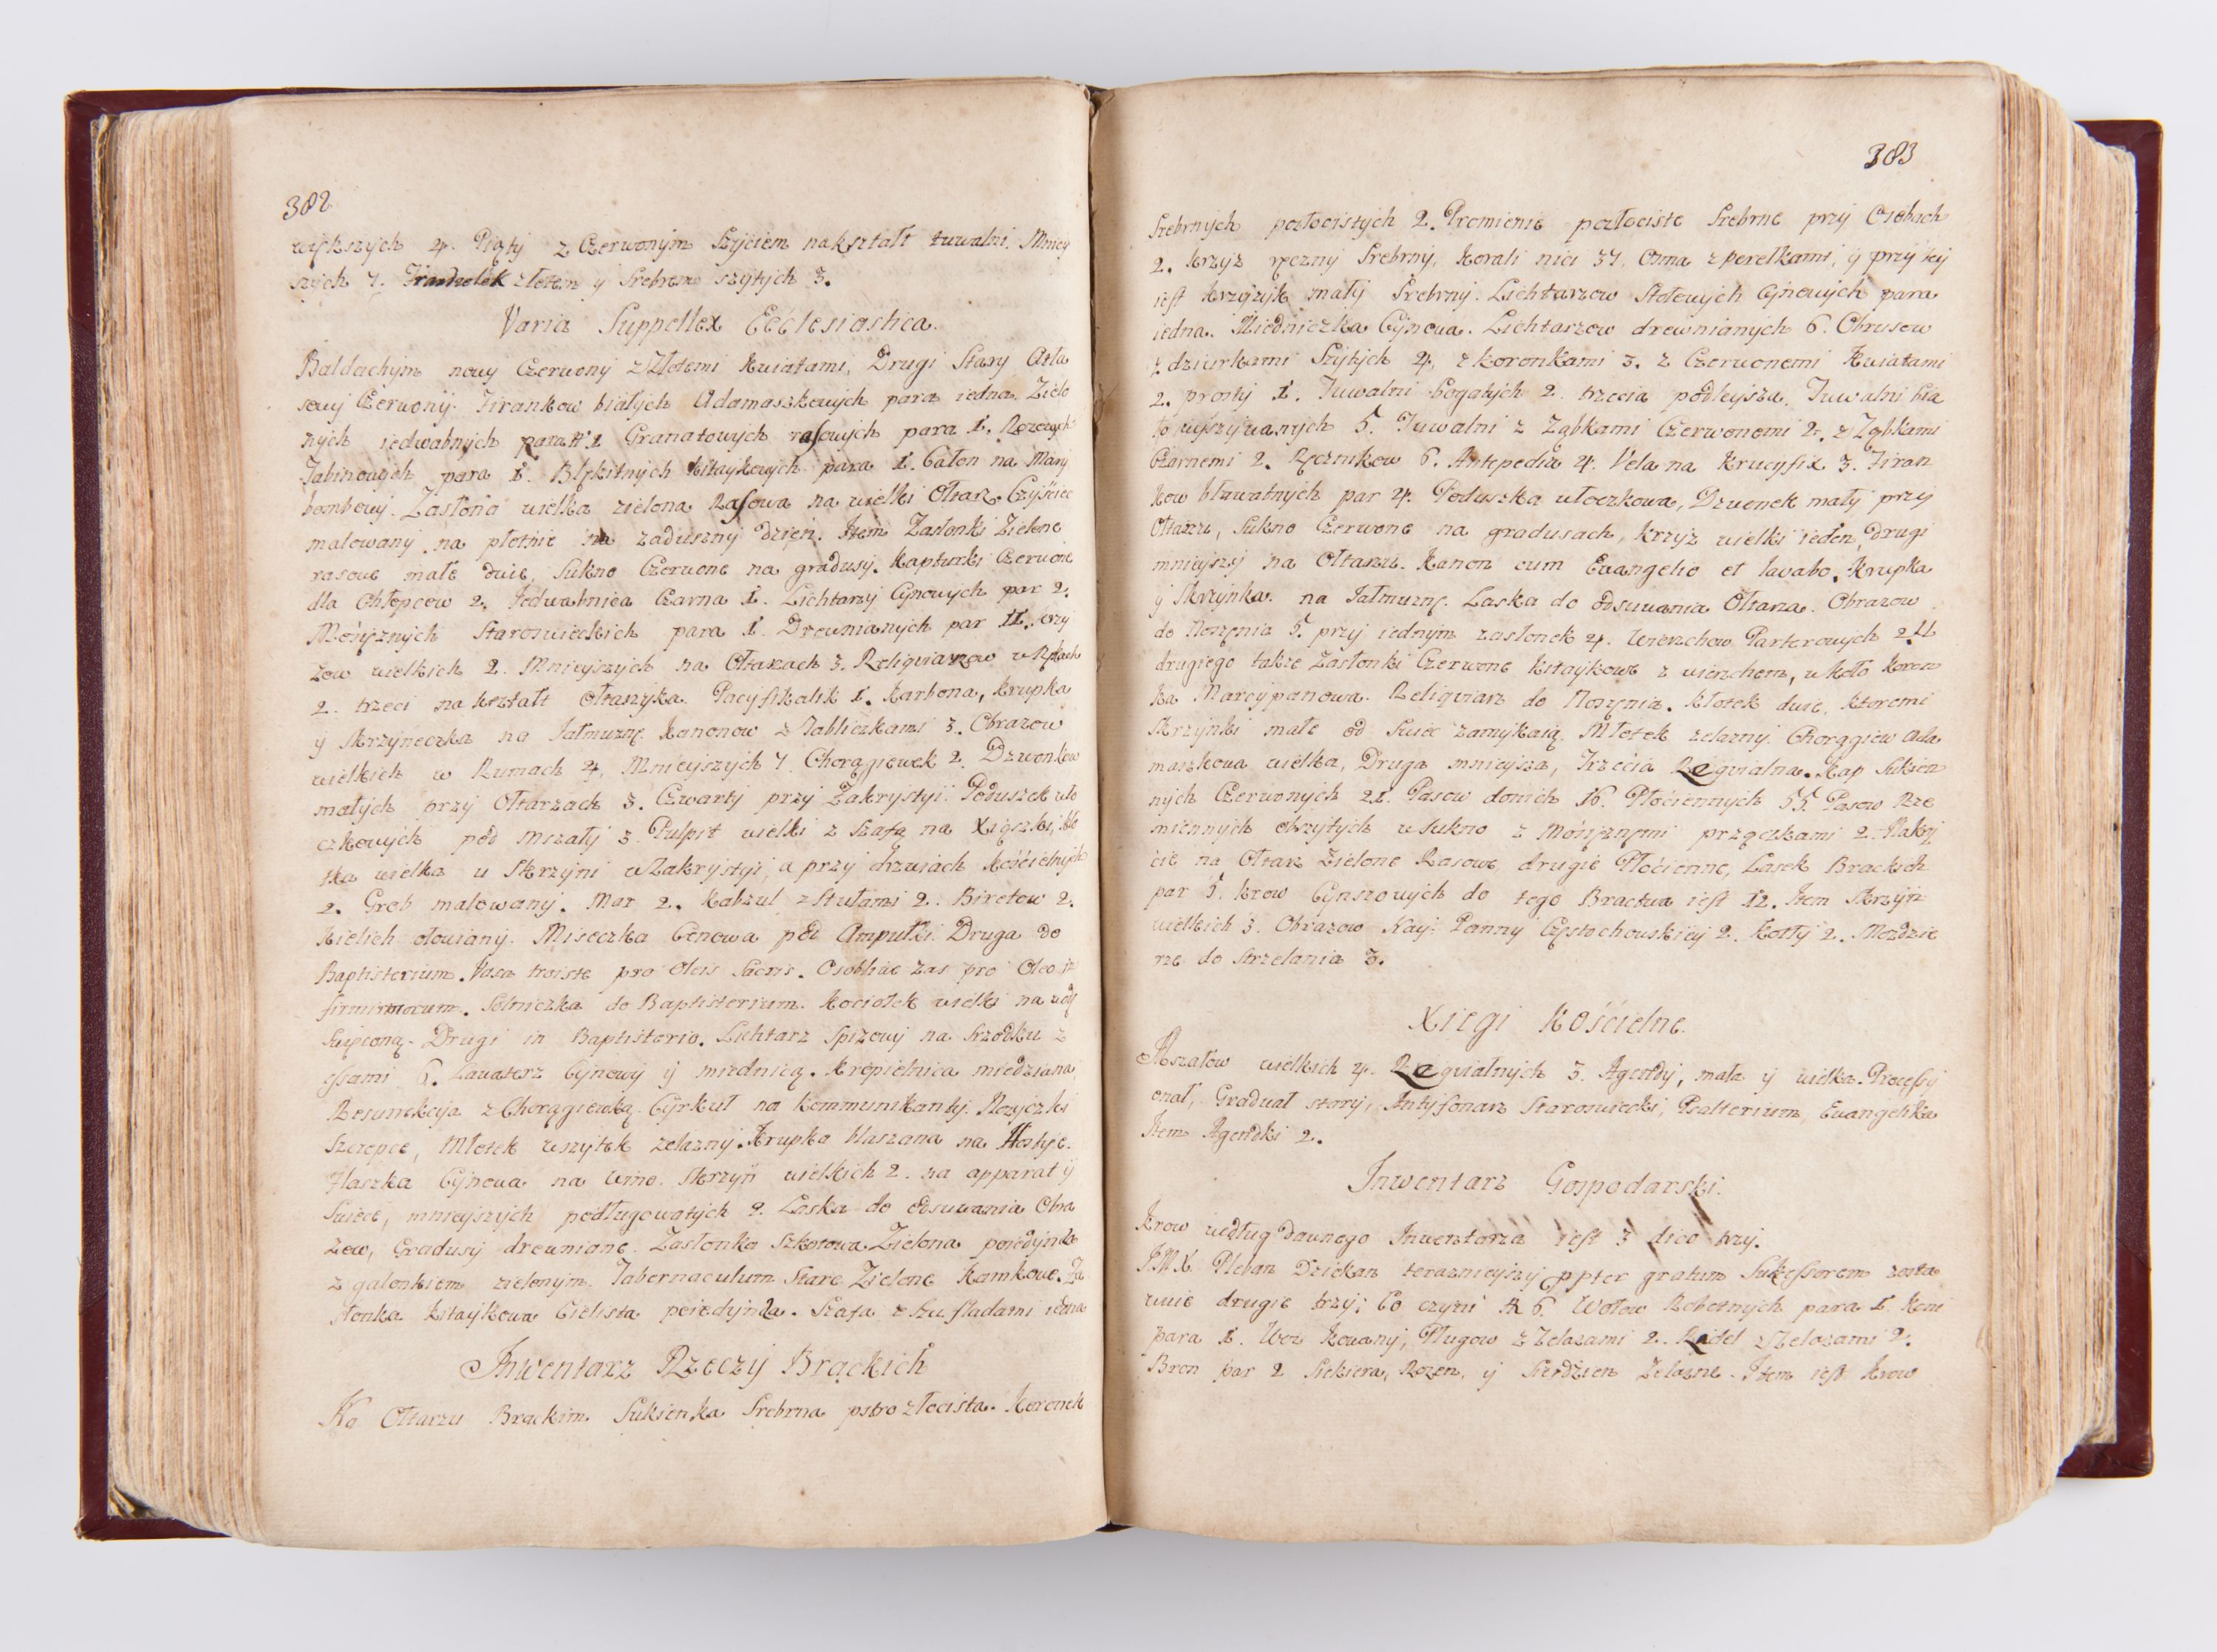 382
większych 4. Piąty z Czerwonym Szyciem nakształt tuwalni. Mniey
szych 7. złotem y Srebrem szytych 3.
Varia Suppellex Ecclesiastica.
Baldachym nowy Czerwony z Złotemi Kwiatami, Drugi Stary Atła
sowy Czerwony. Firankow białych Adamaszkowych para iedna. Zielo
nych iedwabnych para 1. Granatowych rasowych para 1. Rozowych
Tabinowych para 1. Błękitnych Kitaykowych para 1. Całon na Mary
bombowy. Zasłona wielka zielona Rasowa na wielki Ołtarz. Czyściec
malowany na płotnie na zaduszny dzień. Item Zasłonki Zielone
rasowe małe dwie, Sukno Czerwone na gradusy. Kapturki Czerwone
dla Chłopcow 2. Jedwabnica Czarna 1. Lichtarzy Cynowych par 2.
Mosiężnych Staroswieckich para 1. Drewnianych par 11. Krzy
żow wielkich 2. Mnieyszych na Ołtarzach 3. Reliquiarzow w Rękach
2. trzeci na kształt ołtarzyka. Pacyfikalik 1. Karbona, krupka
y Skrzyneczka na Jałmużnę. Kanonow z Tabliczkami 3. Obrazow
wielkich w Ramach 4, Mnieyszych 7. Chorągiewek 2. Dzwonkow
małych przy Ołtarzach 3. Czwarty przy Zakrystyi. Poduszek wło
czkowych pod mszały 3. Pulpit wielki z Szafą na Xiązki, Kło
tka wielka u Skrzyni w Zakrystyi, a przy drzwiach Kościelnych
2. Grob malowany. Mar 2. Kabzul z Stułami 2. Biretow 2.
Kielich ołowiany. Miseczka Cenowa pod Ampułki. Druga do
Baptisterium. Vasa troiste pro Oleis Sacris. Osobliwe zas pro Oleo in
firmorum. Solniczka do Baptisterium. Kociołek wielki na wodę
Swięconą. Drugi in Baptisterio. Lichtarz Spizowy na Srzodku z
essami 6. Lavaterz Cynowy y miednicą. Kropielnica miedziana
Resurrekcya z Chorągiewką. Cyrkuł na Kommunikanty. Nozyczki
Szczepce, Młotek wszytek zelazny. Krupka blaszana na Hostye.
Flaszka Cynowa na wino. Skrzyń wielkich 2. na apparat y
Swiece, mnieyszych podługowatych 2. Laska do odsuwania Obra
zow, Gradusy drewniane. Zasłonka Szkotowa Zielona poiedynka
z galonkiem zielonym. Tabernaculum Stare Zielone Kamkowe. Za
słonka Kitaykowa Cielista poiedynka. Szafa z Szufladami iedna
Inwentarz Rzeczy Brackich
Na Ołtarzu Brackim Sukienka Srebrna pstro złocista. Koronek
383
Srebrnych pozłocistych 2. Promienie pozłociste Srebrne przy Osobach
2. Krzyż ręczny Srebrny, Korali nici 37. Ćma z perełkami, y przy tey
iest krzyzyk mały Srebrny. Lichtarzow Stołowych Cynowych para
iedna. Miedniczka Cynowa. Lichtarzow drewnianych 6. Obrusow
z dziurkami Szytych 4, z koronkami 3. z Czerwonemi Kwiatami
2. prosty 1. Tuwalni bogatych 2. trzecia podleysza. Tuwalni bia
ło wyszywanych 5. Tuwalni z Ząbkami Czerwonemi 2. z Ząbkami
Czarnemi 2. Ręcznikow 6. Antepedia 4. Vela na Krucyfix 3. Firan
kow bławatnych par 4. Poduszka włoczkowa, Dzwonek mały przy
Ołtarzu, Sukno Czerwone na gradusach, Krzyż wielki ieden, Drugi
mnieyszy na Ołtarzu. Kanon cum Evangelio et lavabo. Krupka
y Skrzynka na Jałmuznę. Laska do odsuwania Ołtarza. Obrazow
do Noszenia 5. przy iednym zasłonek 4. Wierzchow Parterowych 2. U
drugiego takze Zasłonki Czerwone Kitaykowe z wierzchem, w koło koron
ka Marcypanowa. Reliquiarz do Noszenia. Kłotek dwie, ktoremi
Skrzynki małe od Swiec zamykaią. Młotek zelazny. Chorągiew Ada
maszkowa wielka, Druga mnieysza, Trzecia Requialna. Kap Sukien
nych Czerwonych 21. Pasow donich 16. Płóciennych 55. Pasow Rze
miennych obszytych w Sukno z Mosiężnemi prządczkami 2. Nakry
cie na Ołtarz Zielone Rasowe, drugie Płócienne, Lasek Brackich
par 5. krow Cynszowych do tego Bractwa iest 12. Item Skrzyń
wielkich 3. Obrazow Nay: Panny Częstochowskiey 2. Kotły 2. Mozdzie
rze do Strzelania 3.
Xięgi Kościelne.
Mszałow wielkich 4. Requialnych 3. Agendy, mała y wielka. Processy
onał, Graduał stary, Antyfonarz Staroswiecki, Psalterium, Evangelika
Item Agendki 2.
Inwentarz Gospodarski.
Krow według dawnego Inwentarza iest 3 dico trzy.
J.M.X. Pleban Dziekan teraznieyszy ppter gratum Sukcessorem zosta
wuie drugie trzy; Co czyni 6. Wołow Robotnych para 1. Koni
para 1. Woz Kowany, Pługow z Zelazami 2. Radeł z Zelazami 2.
Bron par 2 Siekiera, Rozen, y Sierdzien Zelazne. Item iest Krow